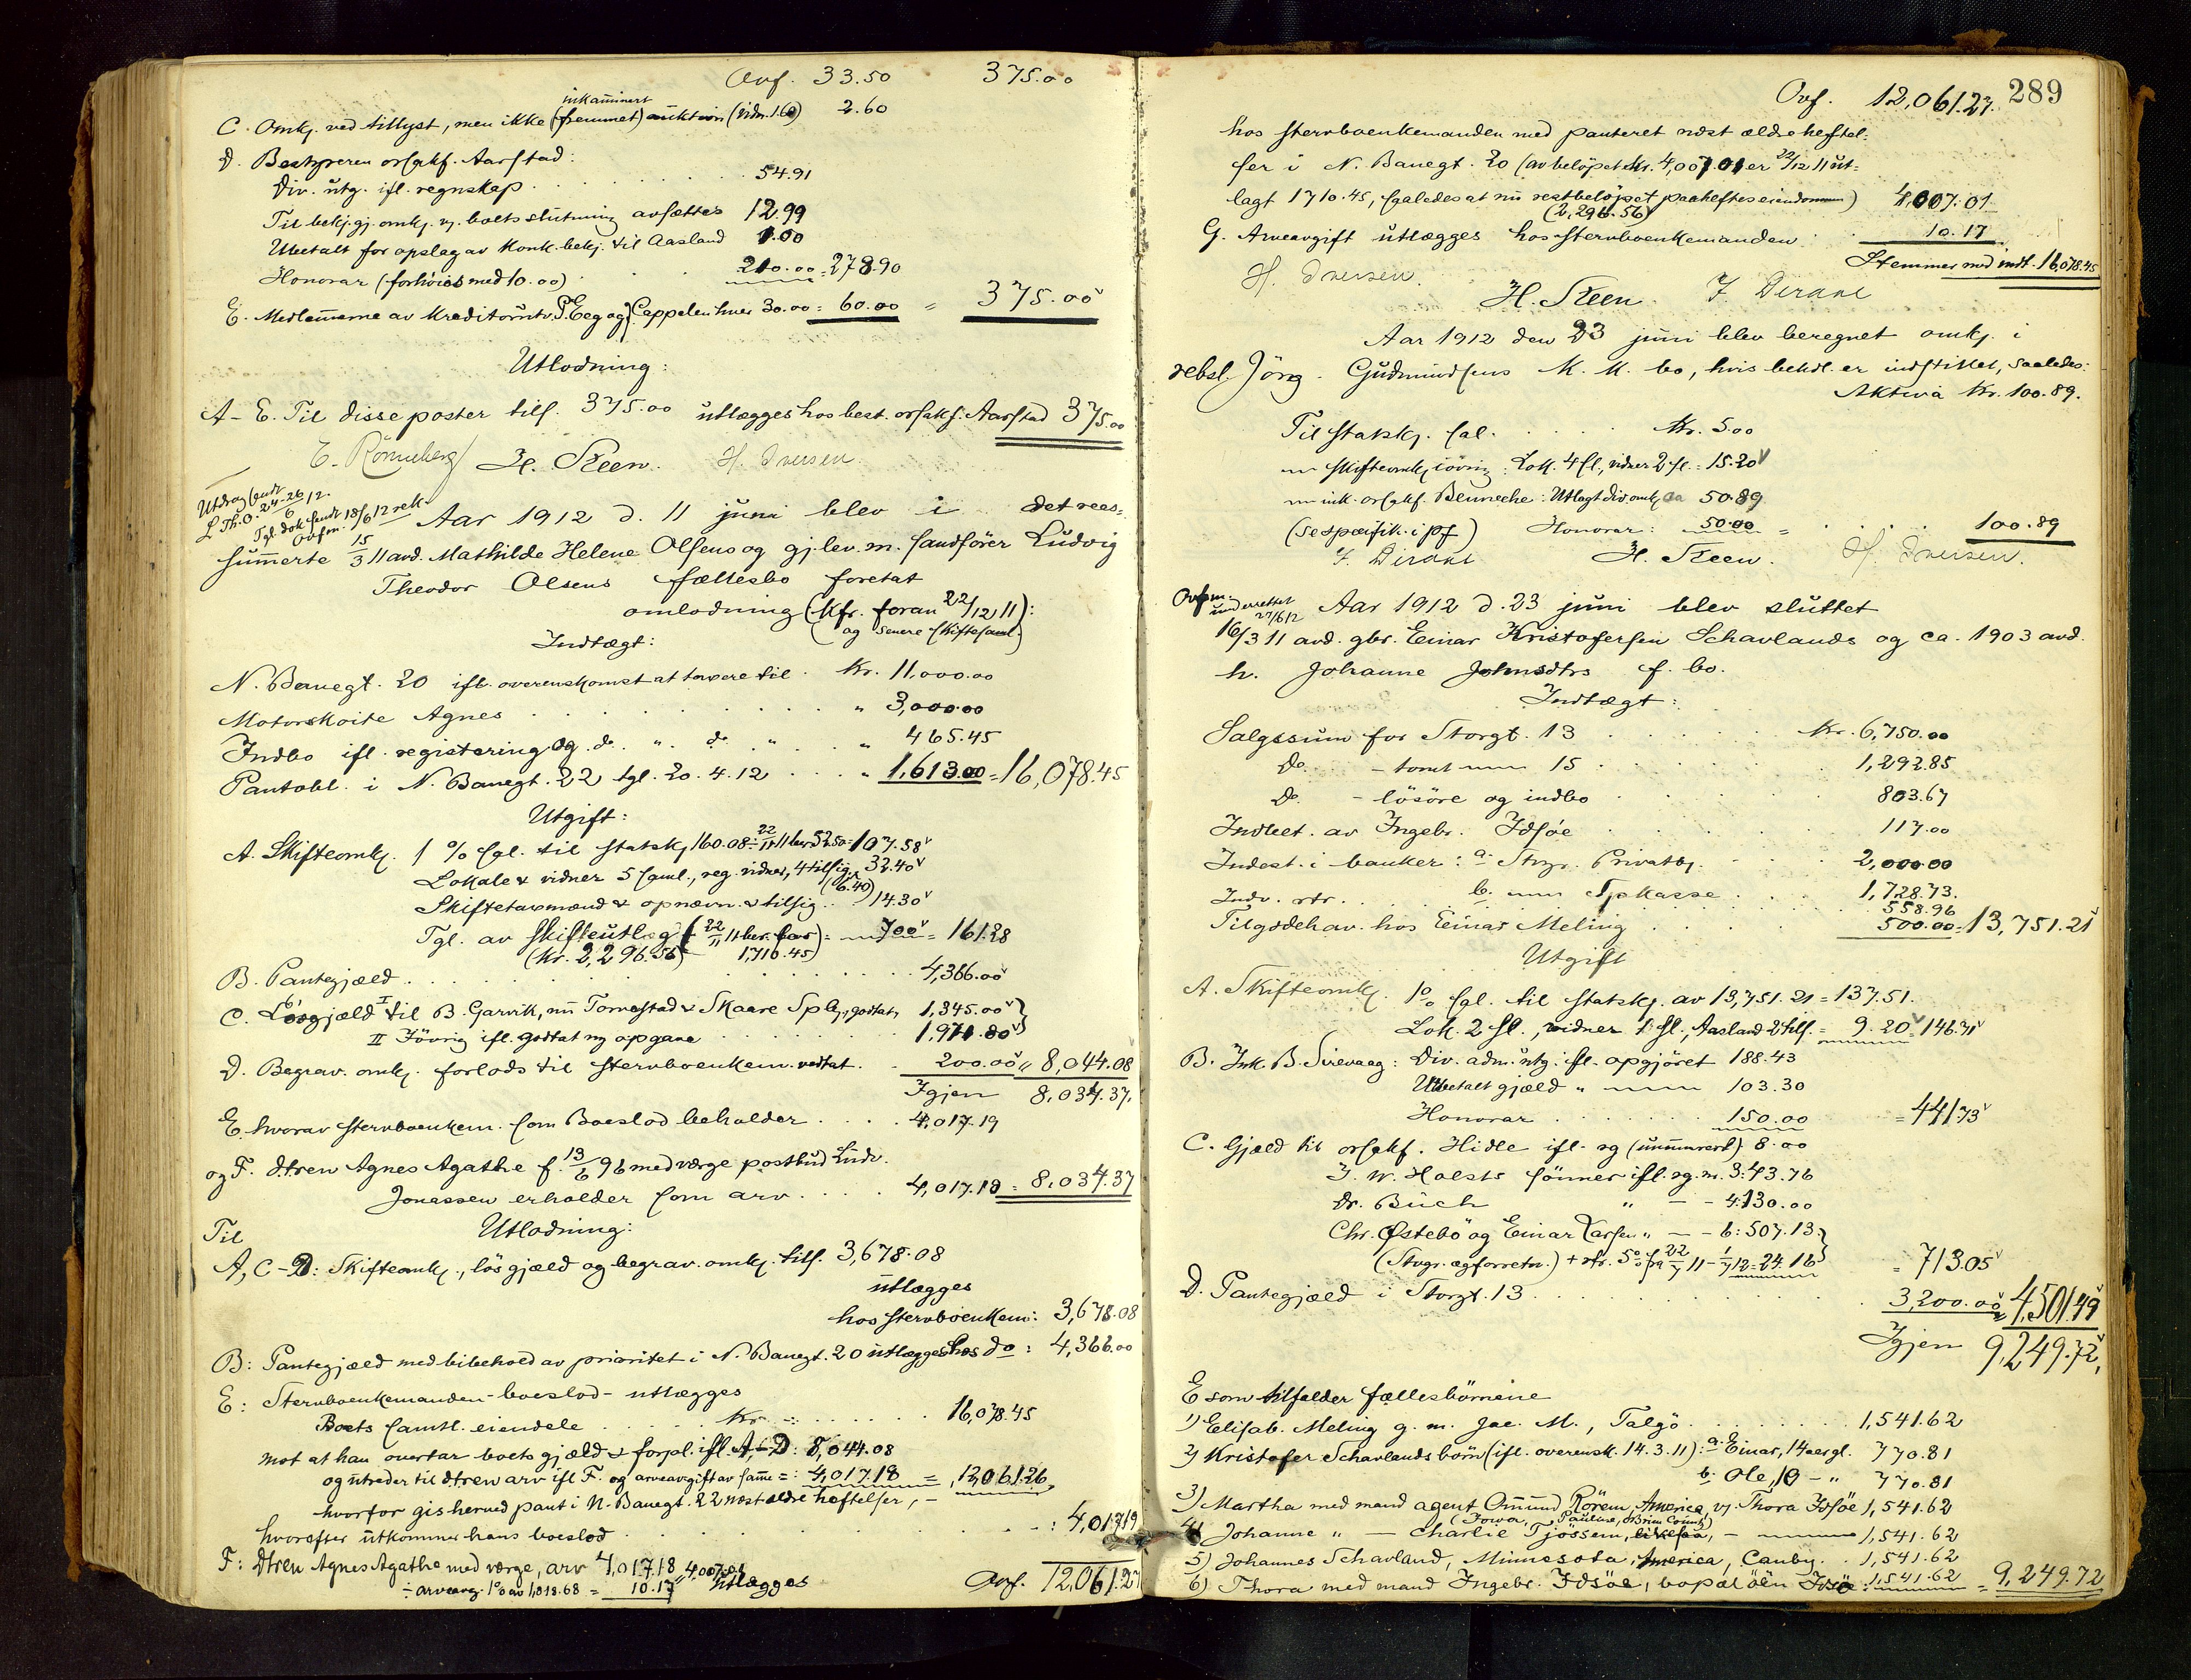 Ovf. 33.50 375.00
inkaminert
C. Omkj. ved tillyst, men ikke (fremmet) auktion (vidn. 1.60) 2.60
D. Bestyreren orsakf. Aarstad:
Div. utg. ifl. regnskap . . . 54.91
Til bekj.gj. omkj. vj. boets slutning avsættes 12.99
Ubetalt for opslag av Konk. bekj. til Aasland 1.00
Honorar (forhöies med 10.00) . . 210.00 = 278.90
E. Medlemmerne av Kreditorutv. P. Eeg og J. Cappelen hver 30.00 = 60.00 = 375.00
Utlodning:
A - E. Til disse poster tils. 375.00 utlægges hos best. orsakf. Aarstad 375.00
E. Rönneberg H. Steen. H. Iversen
Utdrag sendt
L. Th. O. 24-26/6 12.
Tgl. dok. sendt 18/6 12 rek.
Ovfm.
Aar 1912 d. 11 juni blev i det rees-
sumerte 15/3 11 avd. Mathilde Helene Olsens og gj.lev. m. sandförer Ludvig
Theodor Olsens fællesbo foretat
omlodning (kfr. foran 22/12 11):
(og senere skiftesaml.)
Indtægt:
N. Banegt. 20 ifl. overenskomst at tavere til . Kr. 11,000.00
Motorskoite Agnes . . . " 3,000.00
Indbo ifl. registering og do. " do. " . . " 465.45
Pantobl. i N. Banegt. 22 tgl. 20.4.12 . . . " 1,613.00 = 16,078.45
Utgift:
A. Skifteomkj. 1 % sgl. til statskj. 160.08 ÷ 22/11 11 ber. 52.50 = 107.58
Lokale & vidner 5 saml., reg. vidner, 4 tilsig. 32.40
(6.40)
Skiftetaxmænd & opnævn. & tilsig. . . 14.30
Tgl. av skifteutlæg (÷ 22/11 11 ber. for) = 7.00 = 161.28
(Kr. 2,296.56) 1,710.45)
B. Pantegjæld . . . 4,366.00
C. Lösgjæld I til B. Garvik, nu Tornestad & Skaare Spb., godtat, 1,345.00
II Iövrig ifl. godtat ny opgave . . . 1,971.80
D. Begrav. omkj. forlods til stervboenkem. vedtat . . 200.00 " 8,044.08
Igjen 8,034.37.
E. hvorav stervboenkem. som Boeslod beholder . . . 4,017.19
og F. dtren Agnes Agathe f. 13/6 96 med værge postbud Ludv.
Jonassen erholder som arv . . . 4,017.18 = 8,034.37
Til Utlodning:
A, C - D: Skifteomkj., lösgjæld og begrav. omkj. tils. 3,678.08
utlægges
hos stervboenkem: 3,678.08
B: Pantegjæld med bibehold av prioritet i N. Banegt. 20 utlægges hos do : 4,366.00
E: Stervboenkemanden - boeslod - utlægges
Boets samtl. eiendele . . . Kr. . . . 16,078.45
mot at han overtar boets gjæld & forpl. ifl. A-D: 8,044.08
og utreder til dtren arv ifl. F. og arveavgift av samme = : 4,017.18 = 12,061.26,
hvorfor gis herved pant i N. Banegt. 22 næst ældre heftelser, -
hvorefter utkommer hans boeslod . . . : 4,017.19
F: Dtren Agnes Agathe med værge, arv 4,017.18
÷ arveavg. 1% av 1,018.68 = 10.17 " 4,007.01 utlægges Ovf. 12,061.27
289
Ovf. 12,061.27.
hos stervboenkemanden med panteret næst ældre heftel-
ser i N. Banegt. 20 (av belöpet Kr. 4,007.01 er 22/12 11 ut-
lagt 1710.45, saaledes at nu restbelöpet paaheftes eiendommen) 4,007.01
(2,296.56)
G. Arveavgift utlægges hos stervboenkemanden . . 10.17
Stemmer med indt. 16,078.45
H. Iversen. H. Steen. F. Dirdal
Aar 1912 den 23 juni blev beregnet omkj. i
rebsl. Jörg. Gudmundsens K. K. bo, hvis behdl. er indstillet, saaledes:
Aktiva Kr. 100.89.
Til statskj. sal. . . . Kr. 5.00
" skifteomkj. iövrig: Lok. 4 sl., vidner 2 sl. = 15.20
" ink. orsakf. Benneche: Utlagt div. omk. ca 50.89
(se spesifik. i pf) Honorar: 50.00 = . . . 100.89
F. Dirdal H. Steen. H. Iversen.
Ovfm.
underrettet
27/6 12
Aar 1912 d. 23 juni blev sluttet
16/3 11 avd. gbr. Einar Kristofersen Schavlands og ca. 1903 avd.
h. Johanne Johnsdtrs f. bo.
Indtægt:
Salgssum for Storgt. 13 . . . Kr. 6,750.00
Do. - tomt " 15 . . . 1,292.85
Do. - lösöre og indbo . . . 803.67
Indbet. av Ingebr. Idsöe . . . 117.00
Indest. i banker: a. Stvgr. Privatbj. . . . 2,000.00
b. " Spkasse . . . 1,728.73.
Indv. rtr. . . . 558.96
Tilgodehav. hos Einar Meling . . . 500.00 = 13,751.21
Utgift
A. Skifteomkj. 1% sgl. til statskj. av 13,751.21 = 137.51.
Lok. 2 sl., vidner 1 sl., Aasland 2 tils. = 9.20 = 146.71
B. Ink. B. Sirevaag: Div. adm. utg. ifl. opgjöret 188.43
Ubetalt gjæld " " 103.30
Honorar . . . 150.00 = 441.73
C. Gjæld til orsakf. Hidle ifl. rg (unummrert) 8.00
I. W. Holsts sönner ifl. rg. m. 3: 43.76
Dr. Büch " - - 4: 130.00
Chr. Östebö og Einar Larsen " - - 6: 507.13
(Stvgr. ægforretn.) + rtr. 5% fra 22/7 11 - 1/7 12 = 24.16 = 713.05
D. Pantegjæld i Storgt. 13 . . . 3,200.00 " 4,501.49
Igjen 9,249.72,
E som tilfalder fællesbörnene
1) Elisab. Meling g. m. Jac. M., Talgö . . . 1,541.62
2) Kristofer Schavlands börn (ifl. overensk. 14.3.11): a. Einar, 14 aar gl. 770.81
b. Ole, 10 - " 770.81
3) Martha med mand agent Omund Rörem, America, vj. Thora Idsöe 1,541.62
(Iowa, Pauline, OBrien County)
4) Johanne " - Charlie Tjössem, likesaa, - 1,541.62
5) Johannes Schavland, Minnesota, America, Canby. . 1,541.62
6) Thora med mand Ingebr. Idsöe, bopæl öen Idsöe: 1,541.62 = 9,249.72